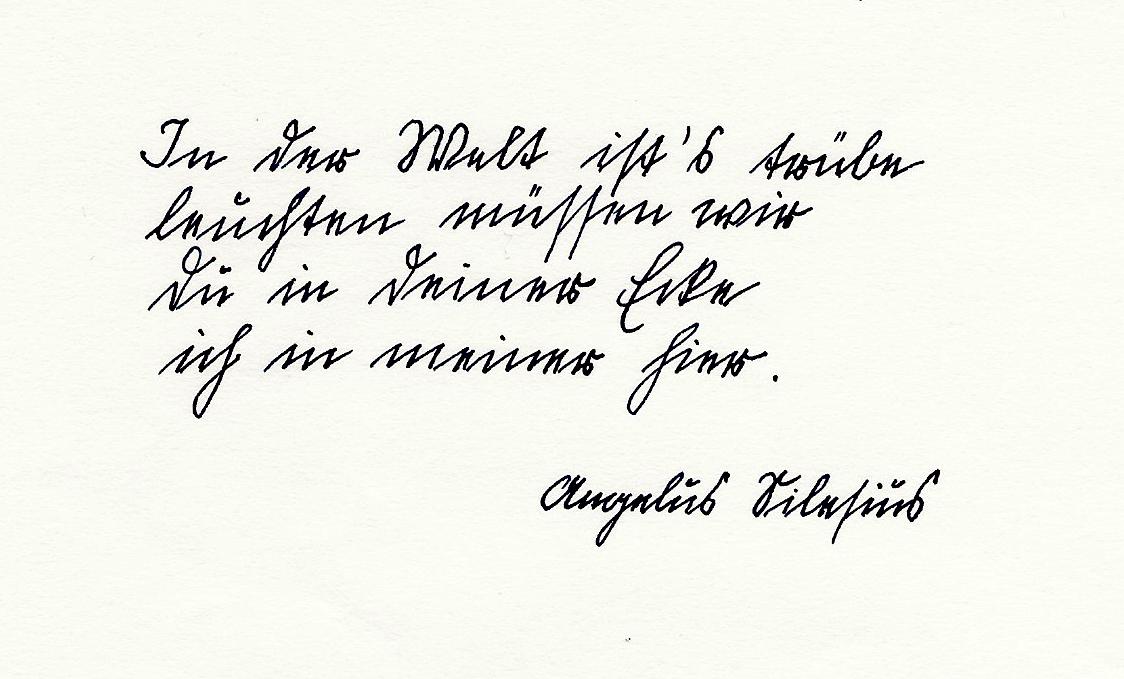 In der Welt ist's trübe
leuchten müssen wir
Du in deiner Ecke
ich in meiner hier.
Angelus Silesius